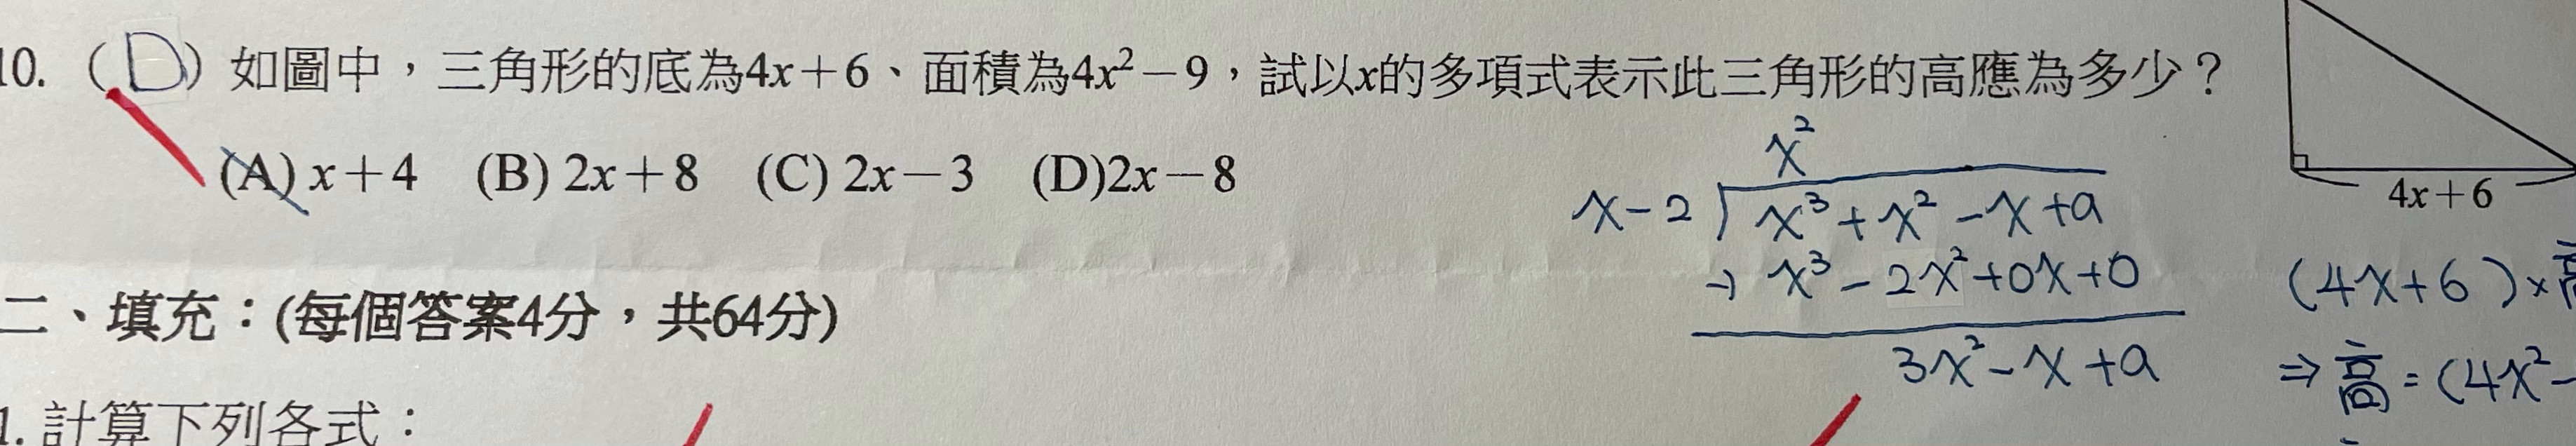 10. (D) 如圖中，三角形的底為4x+6、面積為4x²−9，試以x的多項式表示此三角形的高應為多少？
(A) x+4 (B) 2x+8 (C) 2x−3 (D)2x−8
4x+6
x²
x-2 x³+x²-x+a
x³-2x²+0x+0
3x²-x+a
(4x+6)×
⇒高=(4x²-
二、填充：(每個答案4分，共64分)
1. 計算下列各式：